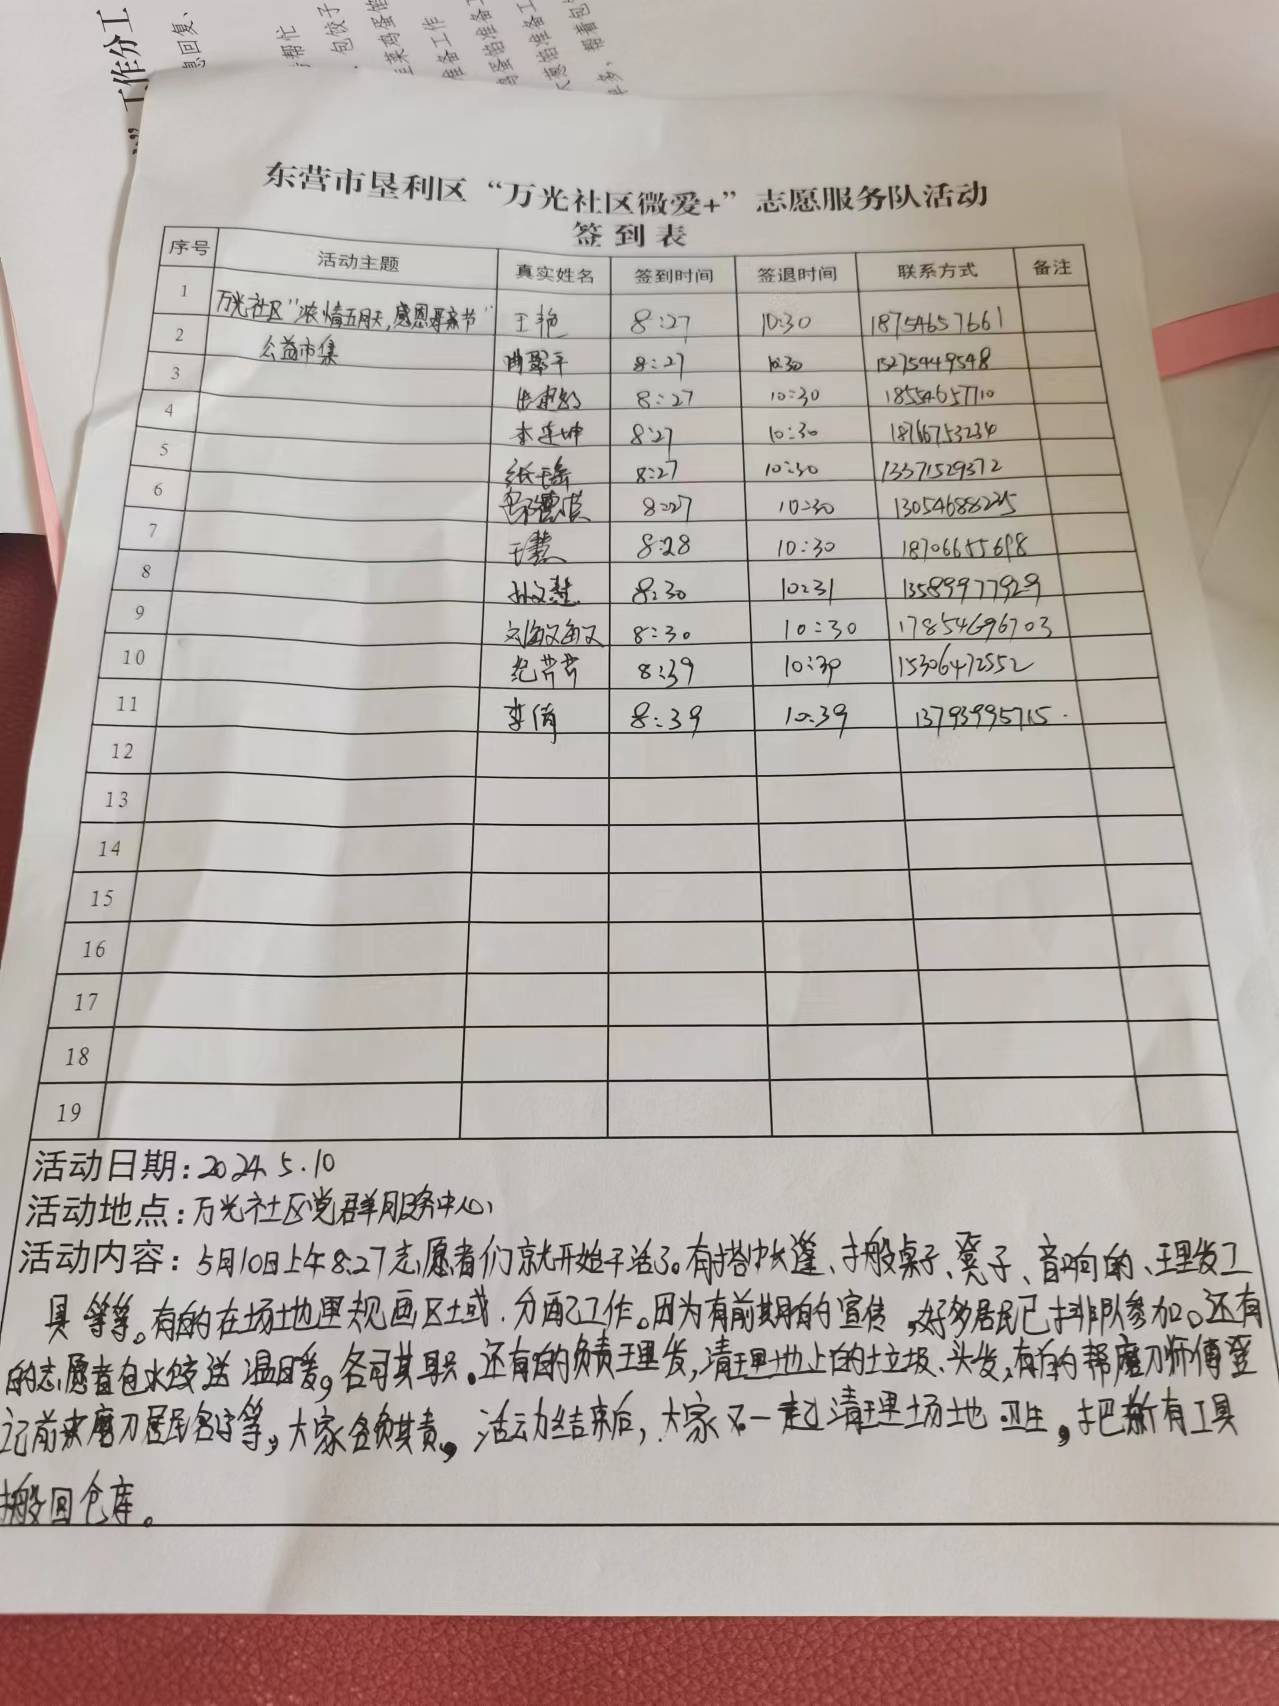 工作分工
息回复、
帮忙
包饺子
韭菜鸡蛋馅
准备工作
鸡蛋馅准备工
大葱馅准备工
帮着包
东营市垦利区“万光社区微爱+”志愿服务队活动
签到表
序号 活动主题 真实姓名 签到时间 签退时间 联系方式 备注
1 万光社区“浓情五月天,感恩母亲节” 王艳 8:27 10:30 18754657661
2 公益市集 8:27 10:30 15275449548
3 8:27 10:30 18554657710
4 李连坤 8:27 10:30 18766753234
5 8:27 10:30 13371529372
6 8:27 10:30 13054688225
7 王慧 8:28 10:30 18706655698
8 孙文慧 8:30 10:31 13589977929
9 刘海英 8:30 10:30 17854696703
10 纪芹芹 8:39 10:39 15306472552
11 李倩 8:39 10:39 13793995715.
12
13
14
15
16
17
18
19
活动日期:2024.5.10
活动地点:万光社区党群服务中心
活动内容:5月10日上午8:27志愿者们就开始干活了。有搭帐篷、搬桌子、凳子、音响的、理发工
具等等。有的在场地里规画区域.分配工作。因为有前期的宣传,好多居民已排队参加。还有
的志愿者包水饺送温暖,各司其职.还有的负责理发,清理地上的垃圾、头发,有的帮磨刀师傅登
记前来磨刀居民名字等,大家各负其责。活动结束后,大家一起清理场地卫生,把所有工具
搬回仓库。